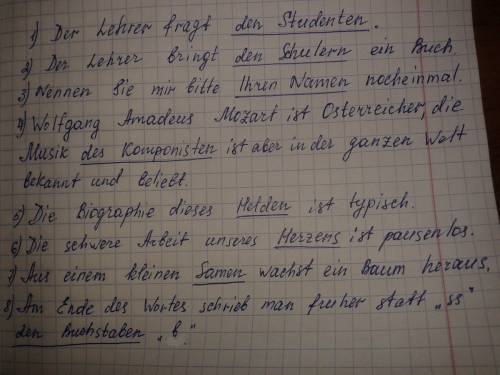 1) Der Lehrer fragt den Studenten.
2) Der Lehrer bringt den Schulern ein Buch
3) Nennen Sie mir bitte Ihren Namen nocheinmal.
4) Wolfgang Amadeus Mozart ist Osterreicher, die
Musik des Komponisten ist aber in der ganzen Welt
bekannt und beliebt.
5) Die Biographie dieses Helden ist typisch.
6) Die schwere Arbeit unseres Herzens ist pausenlos.
7) Aus einem kleinen Samen wachst ein Baum heraus.
8) Am Ende des Wortes schrieb man fruher statt „ss"
den Buchstaben „ß"